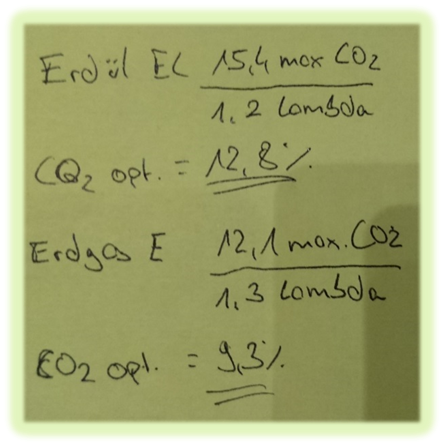 Erdöl EL 15,4 max CO2
1,2 Lambda
CO2 opt. = 12,8%
Erdgas E 12,1 max. CO2
1,3 Lambda
CO2 opt. = 9,3%